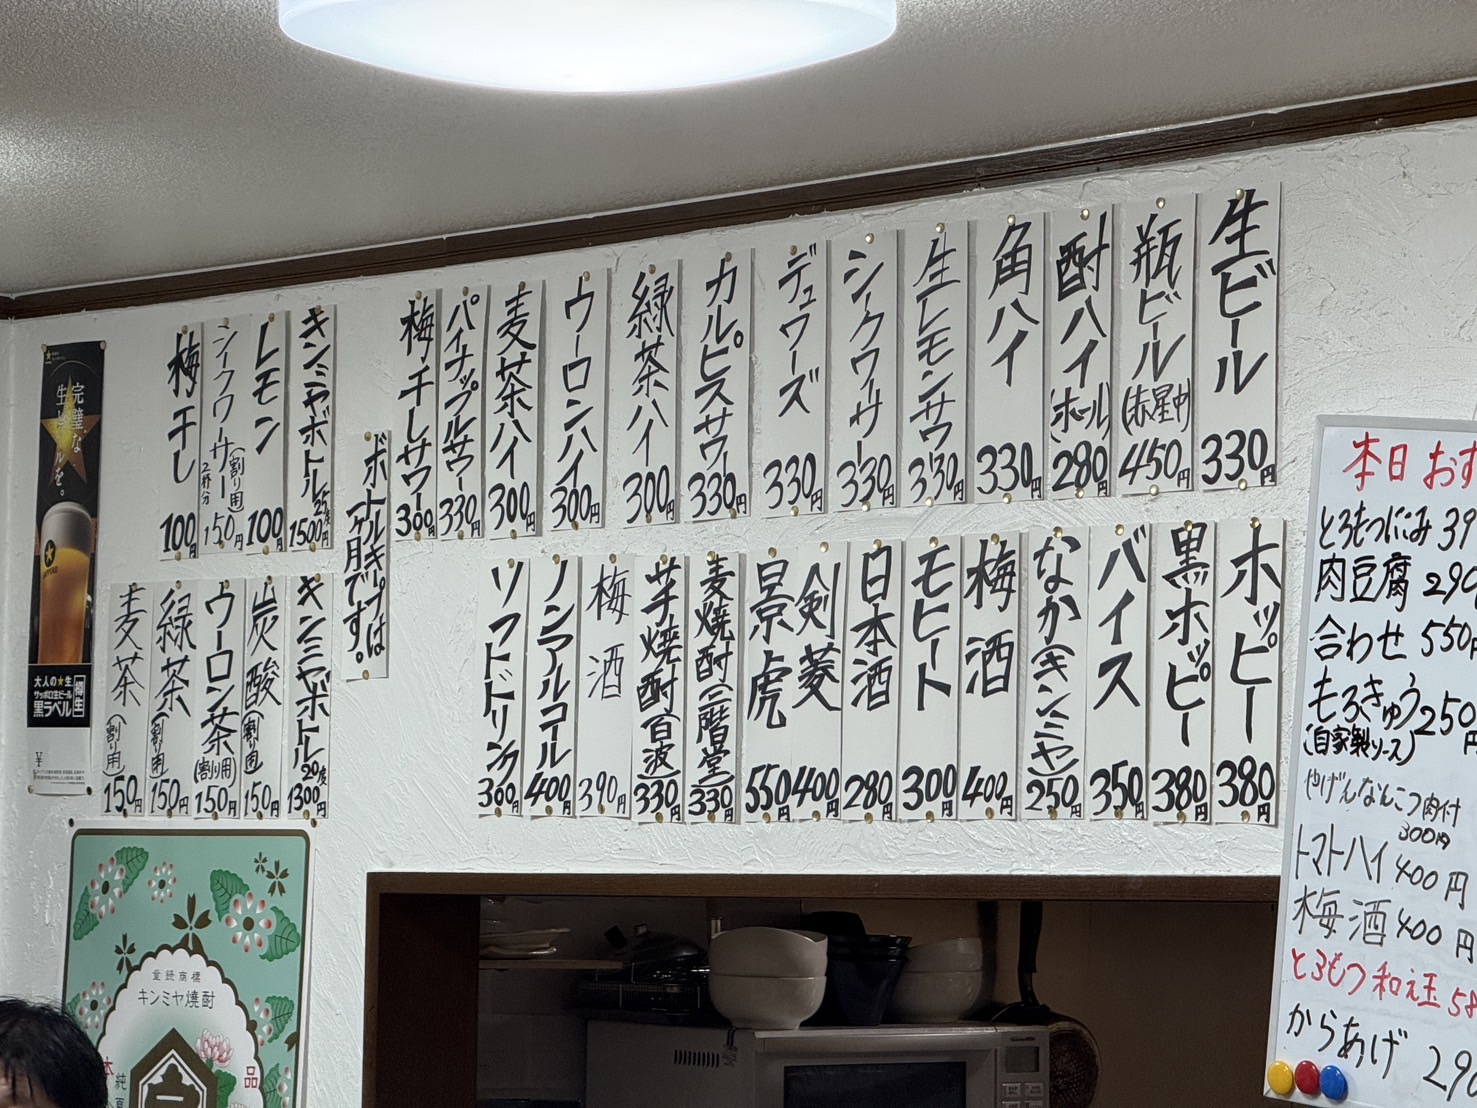 生ビール 330円
瓶ビール(赤星中) 450円
酎ハイ(ホール) 280円
角ハイ 330円
生レモンサワー 330円
シークワーサー 330円
デュワーズ 330円
カルピスサワー 330円
緑茶ハイ 300円
ウーロンハイ 300円
麦茶ハイ 300円
パイナップルサワー 330円
梅干しサワー 300円
ホッピー 380円
黒ホッピー 380円
バイス 350円
なか(キンミヤ) 250円
梅酒 400円
モヒート 300円
日本酒 280円
剣菱 400円
景虎 550円
麦焼酎(二階堂) 330円
芋焼酎(百波) 330円
梅酒 390円
ノンアルコール 400円
ソフトドリンク 300円
ボトルキープは
一ヶ月です。
キンミヤボトル 25度 1500円
レモン 100円
シークワーサー(割り用) 2杯分 150円
梅干し 100円
キンミヤボトル 20度 1300円
炭酸(割り用) 150円
ウーロン茶(割り用) 150円
緑茶(割り用) 150円
麦茶(割り用) 150円
完璧な
大人の★生
サッポロ生ビール
黒ラベル
樽生
登録商標
キンミヤ焼酎
品
本日おす
とろもつにこみ 39
肉豆腐 290
合わせ 550円
もろきゅう 250円
(自家製ソース)
やげんなんこつ肉付
300円
トマトハイ 400円
梅酒 400円
とろもつ和え玉 58
からあげ 290